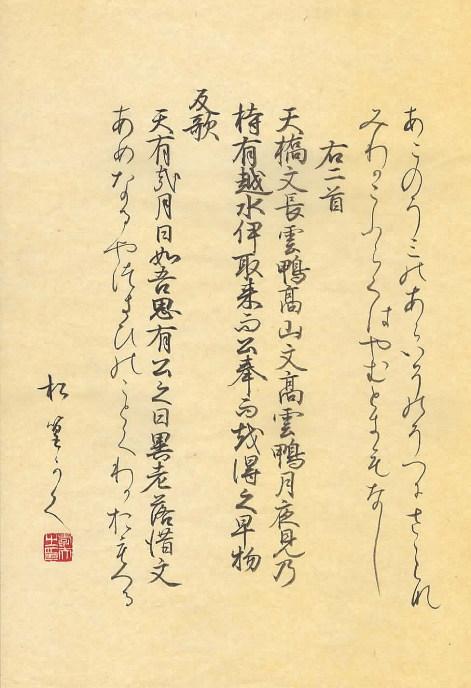 あこのうみのあらいそのうへのさゝれな
みわかこふらくはやむときもなし
右二首
天橋文長雲鴨高山文高雲鴨月夜見乃
持有越水伊取来而公奉而越得之早物
反歌
天有哉月日如吾思有公之日異老落惜文
あめなるやつきひのことくわかおもへる
松篁